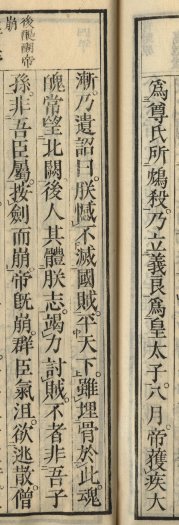 爲尊氏所鴆殺。乃立義良爲皇太子。八月。帝獲疾大
漸。乃遺詔曰。朕憾不滅國賊。平天下。雖埋骨於此。魂
魄常望北闕。後人其體朕志。竭力討賊。不者非吾子
孫。非吾臣屬。按劍而崩。帝既崩。群臣氣沮。欲逃散。僧
後醍醐帝
崩